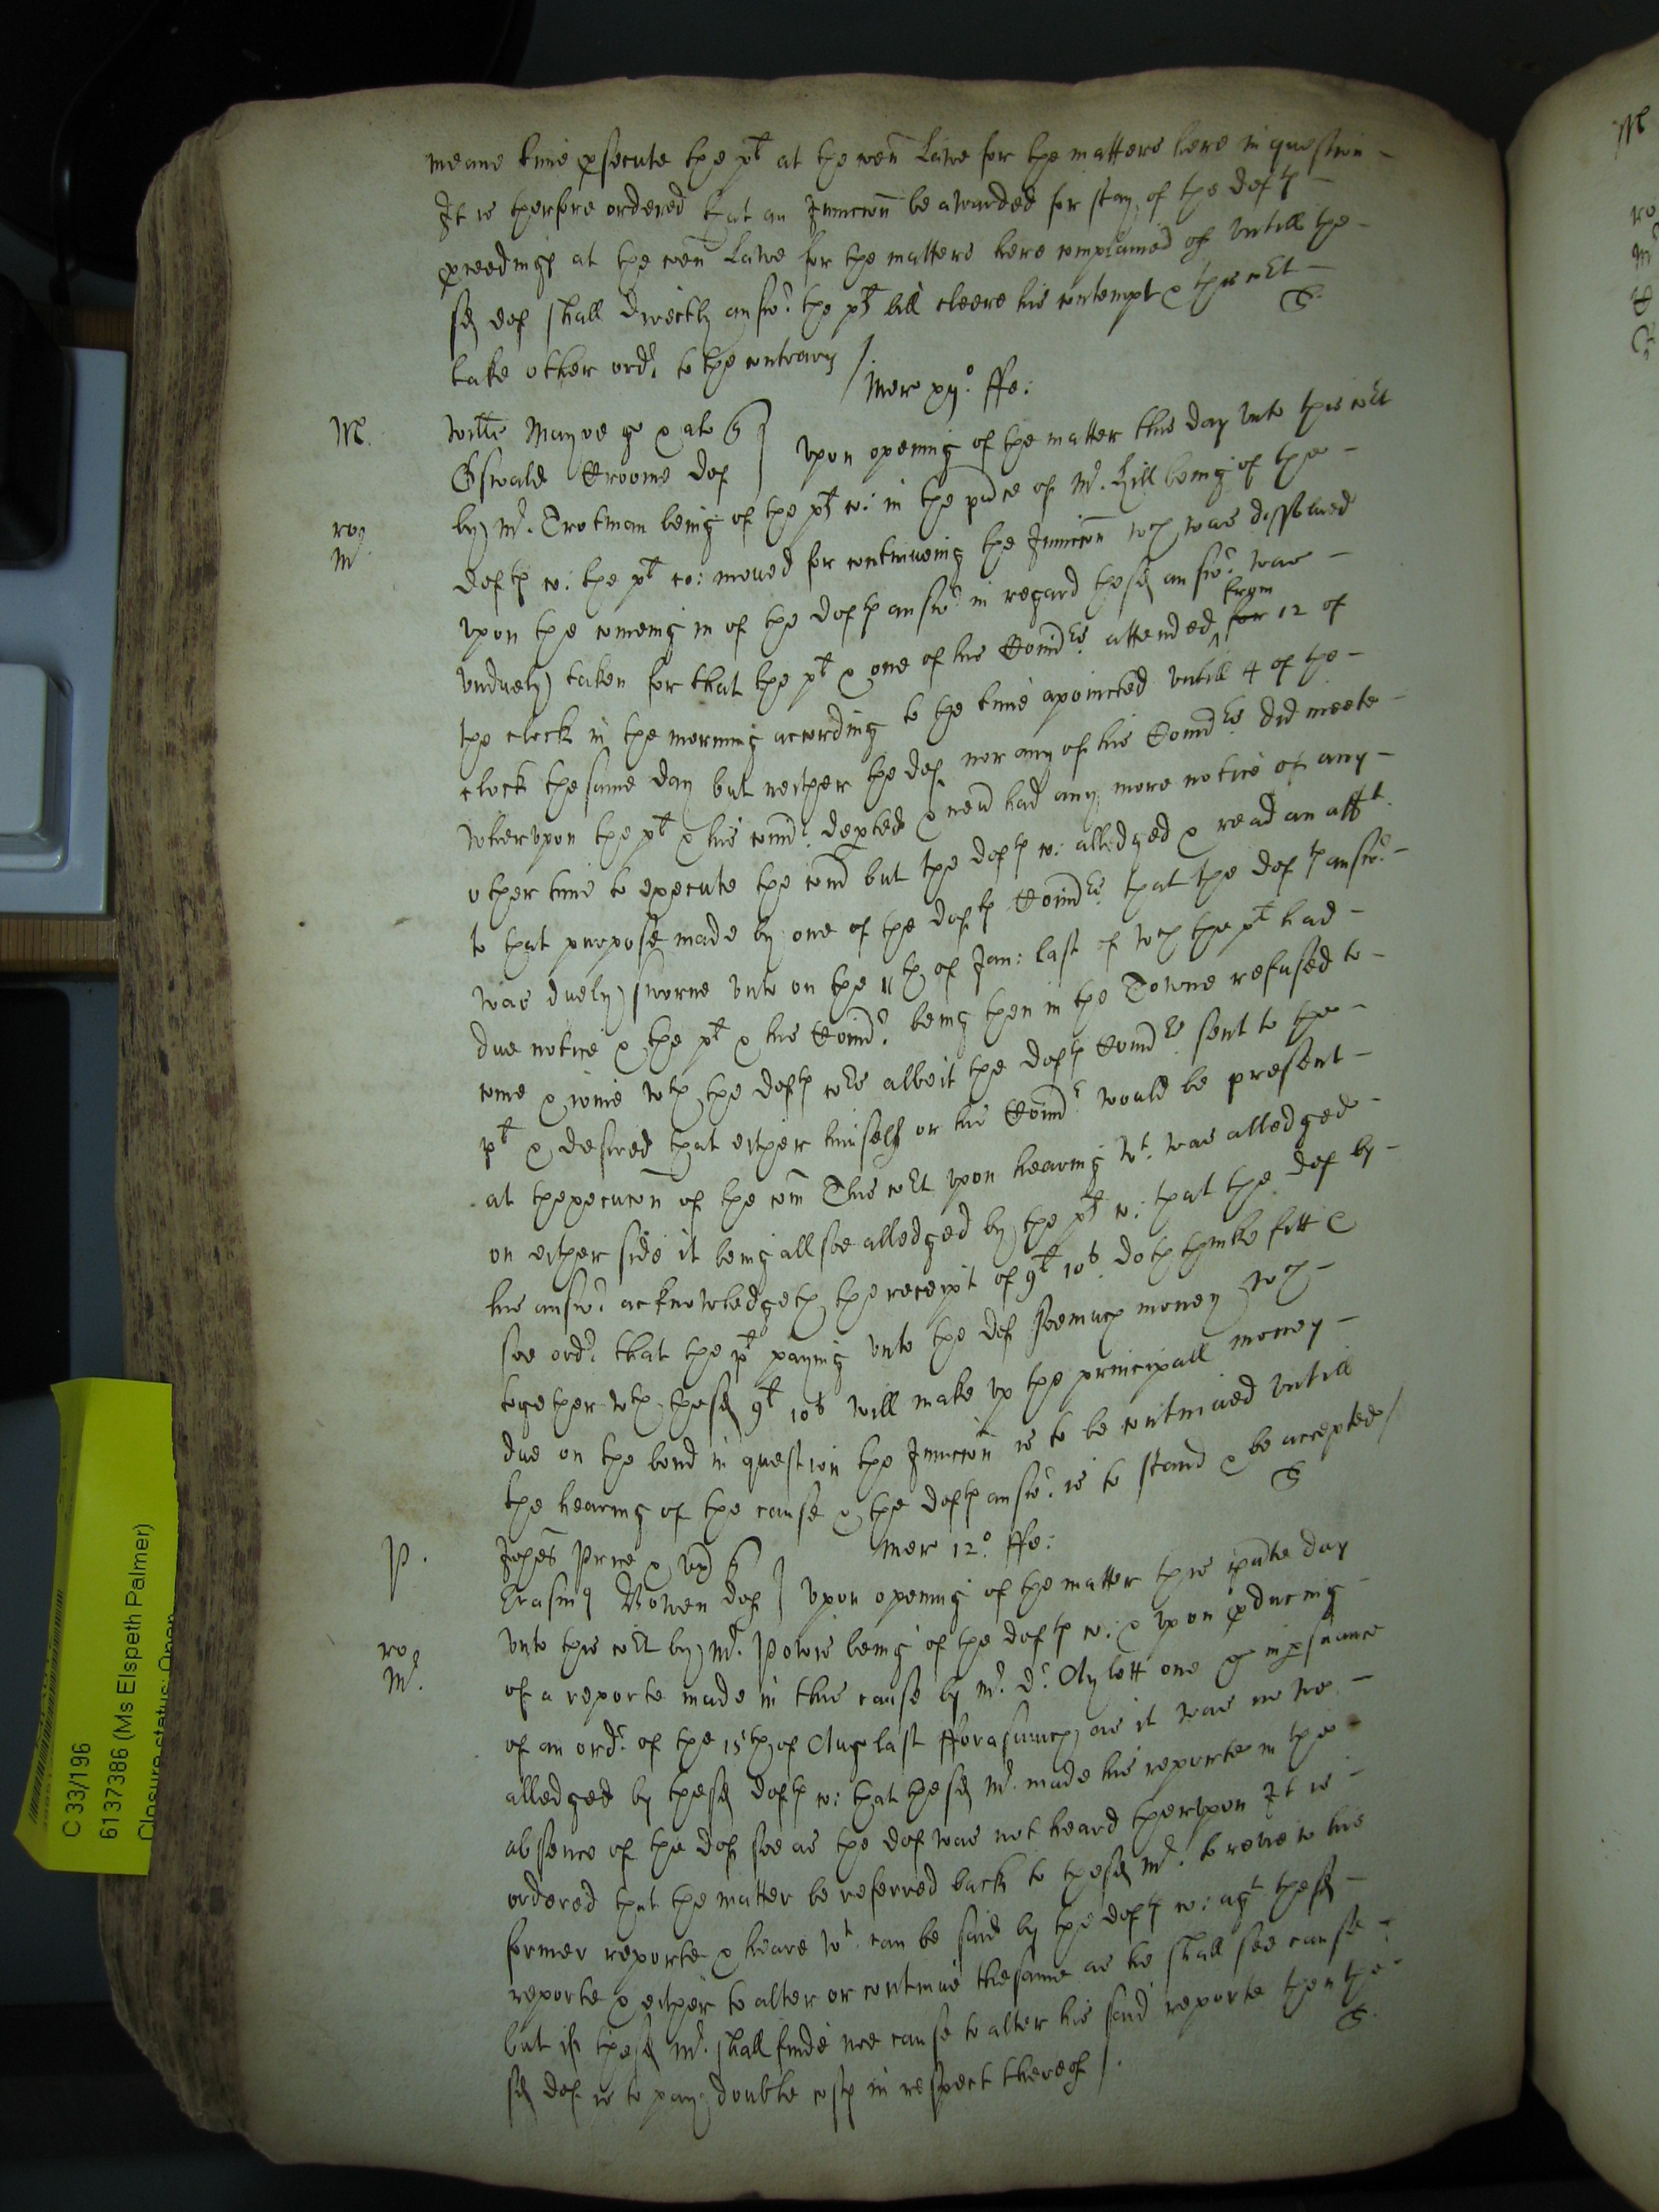 meane time psecute the plt at the coen Lawe for the matters here in question -
It is therfore ordered that an Iniuccon be awarded for stay of the defts -
pceedings at the coen Lawe for the matters here complained of vntill the -
sd def shall directly answr the plts bill cleere his contempt & this cort -
take other ordr to the contrary /
S.
Mer xijo ffe:
M.
Willm & al qts
Oswald Kroome def
Vpon opening of the matter this day vnto this cort
reg
m
by Mr. Trotman being of the plts co: in the pnce of Mr. Hill being of the -
defts co: the plts co: moued for contynueing the Iniuccon wch was dissolued
vpon the comeing in of the defts answr in regard the sd answr was -
vnduely taken for that the plt & one of his Comrs attended from for 12 of
the clock in the morning according to the time apointed vntill 4 of the -
clock the same day but neither the def nor any of his Comrs did meete -
whervpon the plt & his comr depted & neu had any more notice of any -
other time to execute the com but the defts co: alledged & read an afft
to that purpose made by one of the defts Comrs that the defts answr -
was duely sworne vnto on the 11th of Jan: last of wch the plt had -
due notice & the plt & his Comr being then in the Towne refused to -
come & ioine wth the defts coes albeit the defts Comrs sent to the -
plt & desired that either himself or his Comr would be present -
at thexecucon of the com This cort vpon hearing wt was alledged -
on either side it being allsoe alledged by the plts co: that the def by -
his answr acknowledgeth the receipt of 9l 10s doth thinke fitt &
soe ordr that the plt paying vnto the def soemuch money wch -
together wth the sd 9l 10s will make vp the principall money -
due on the bond in question the Iniuccon is to be continued vntill
the hearing of the cause & the defts answr is to stand & be accepted /
S
Mer 12o ffe:
P.
Price & vx qts
Erasmus Bowen def
Vpon opening of the matter this pnte day
reg
Mr.
vnto this cort by Mr. Powis being of the defts co: & vpon pducing -
of a reporte made in this cause by Mr. Dr. Aylett one &c in psuance
of an ordr of the 15th of Aug last fforasmuch as it was now -
alledged by the sd defts co: that the sd Mr. made his reporte in the
absence of the def soe as the def was not heard thervpon It is -
ordered that the matter be referred back to the sd Mr. to reveiw his
former reporte & heare wt can be said by the defts co: agt the sd -
reporte & either to alter or continue the same as he shall see cause -
but if the sd Mr. shall finde noe cause to alter his said reporte then the -
sd def is to pay double costs in respect thereof /.
S.
C 33/196
6137386 (Ms Elspeth Palmer)
Closure status: Open